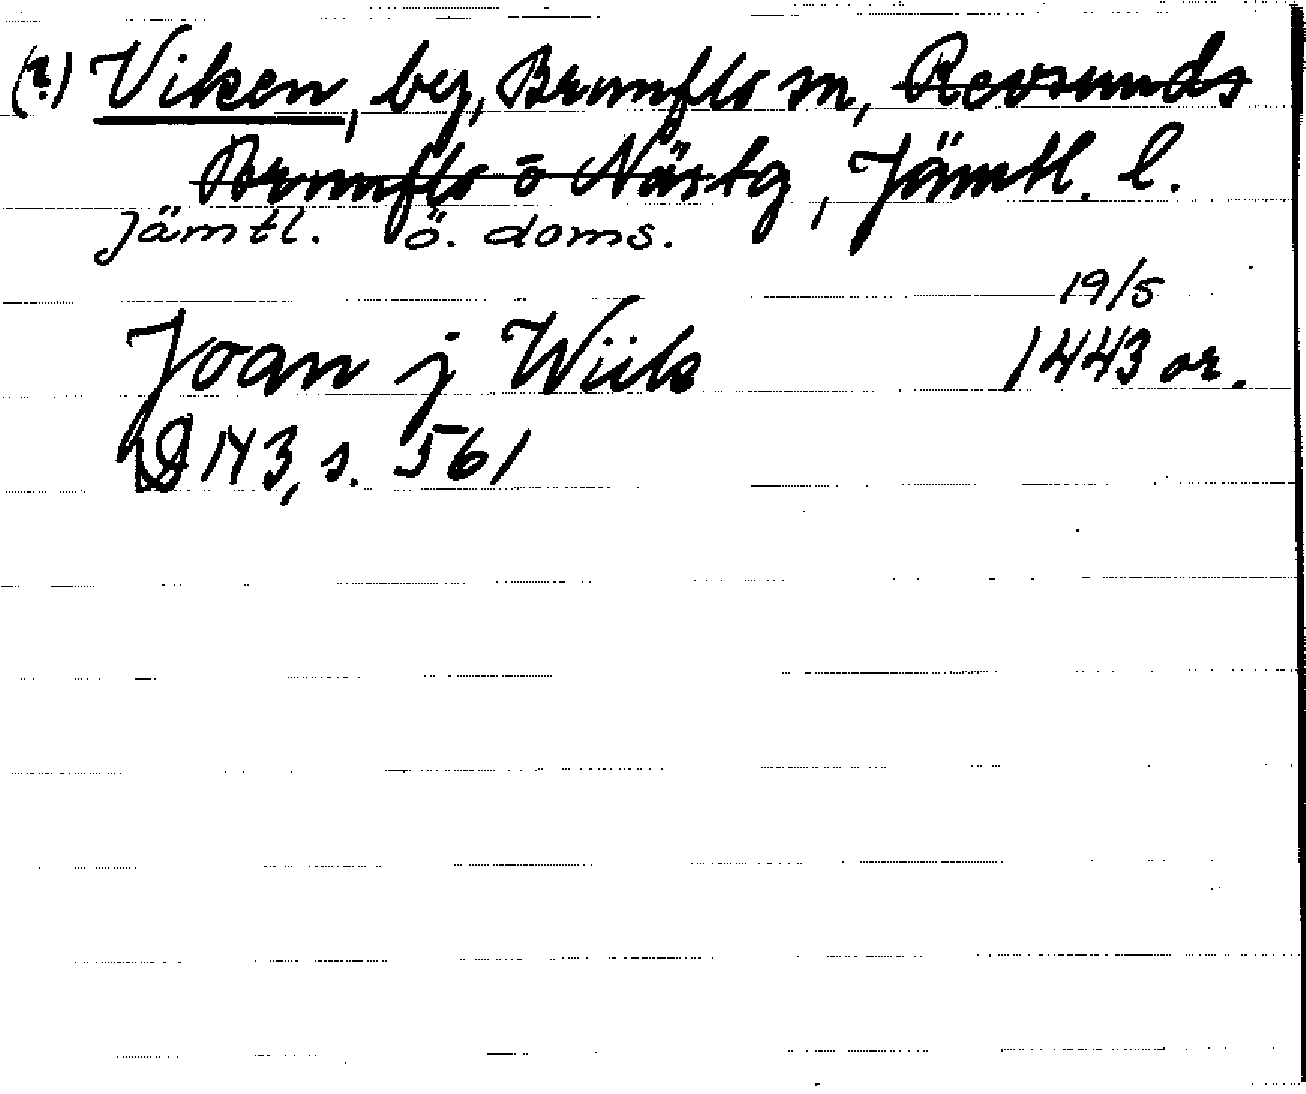 (?) Viken, by, Brunflo sn, Revsunds
Brunflo o Näs tg, Jämtl. l.
Jämtl. ö. doms.
19/5
Joan j Wiik 1443 or.
DN 3, s. 561